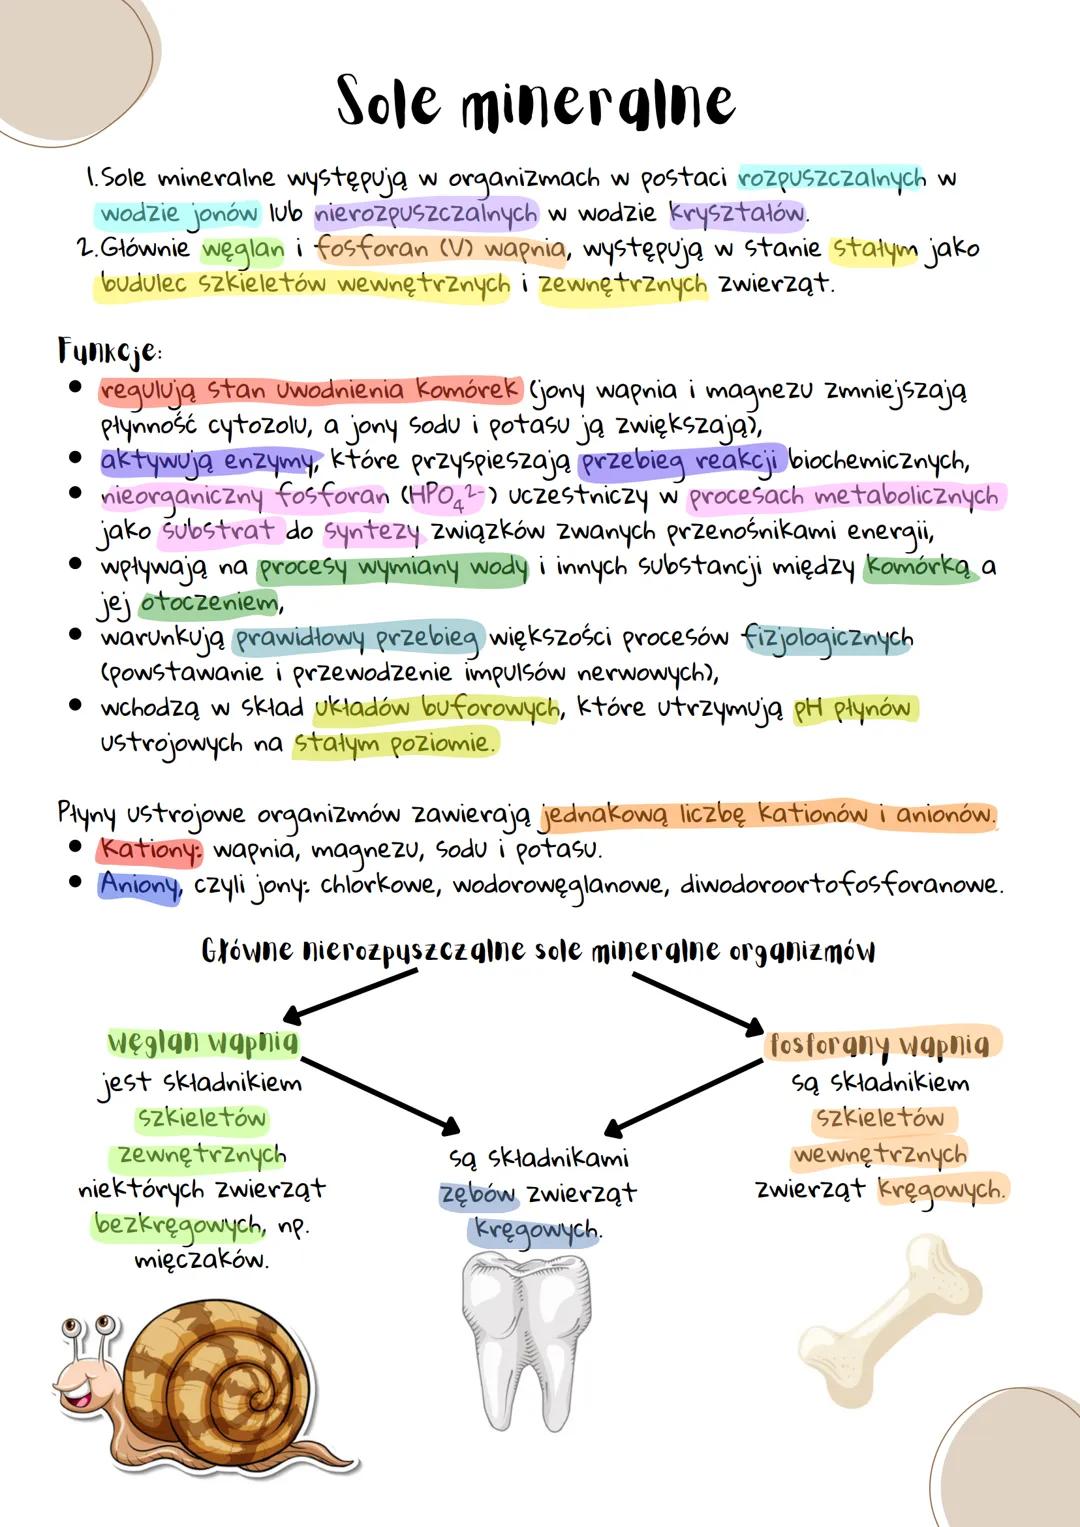 Sole mineralne
1. Sole mineralne występują w organizmach w postaci rozpuszczalnych w
wodzie jonów lub nierozpuszczalnych w wodzie kryształów.
2. Głównie węglan i fosforan (V) wapnia, występują w stanie stałym jako
budulec szkieletów wewnętrznych i zewnętrznych zwierząt.
Funkcje:
• regulują stan uwodnienia komórek (jony wapnia i magnezu zmniejszają
płynność cytozolu, a jony sodu i potasu ją zwiększają),
• aktywują enzymy, które przyspieszają przebieg reakcji biochemicznych,
• nieorganiczny fosforan (HPO₄²⁻) uczestniczy w procesach metabolicznych
jako substrat do syntezy związków zwanych przenośnikami energii,
• wpływają na procesy wymiany wody i innych substancji między komórką a
jej otoczeniem,
• warunkują prawidłowy przebieg większości procesów fizjologicznych
(powstawanie i przewodzenie impulsów nerwowych),
• wchodzą w skład układów buforowych, które utrzymują pH płynów
ustrojowych na stałym poziomie.
Płyny ustrojowe organizmów zawierają jednakową liczbę kationów i anionów.
• Kationy: wapnia, magnezu, sodu i potasu.
• Aniony, czyli jony: chlorkowe, wodorowęglanowe, diwodoroortofosforanowe.
Główne nierozpuszczalne sole mineralne organizmów
węglan wapnia
jest składnikiem
szkieletów
zewnętrznych
niektórych zwierząt
bezkręgowych, np.
mięczaków.
są składnikami
zębów zwierząt
kręgowych.
fosforany wapnia
są składnikiem
szkieletów
wewnętrznych
zwierząt kręgowych.